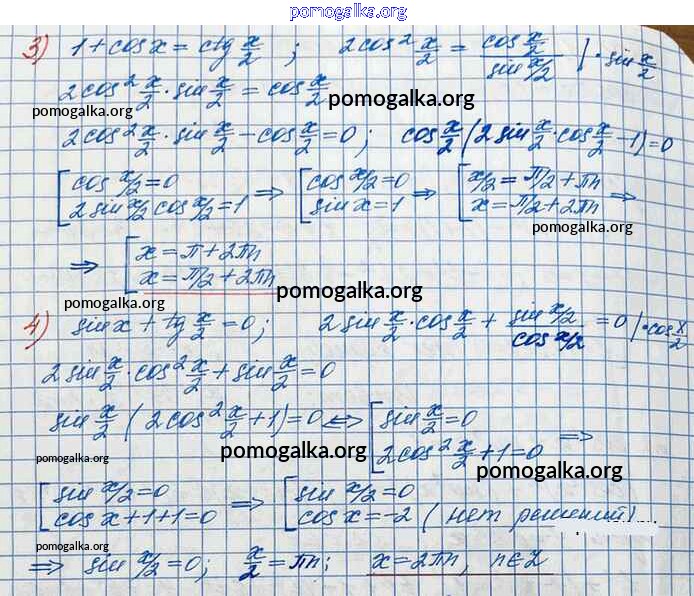 pomogalka.org
3) 1 + cos x = ctg x/2 ; 2cos² x/2 = cos x/2 / sin x/2 | · sin x/2
2cos² x/2 · sin x/2 = cos x/2
pomogalka.org pomogalka.org
2cos² x/2 · sin x/2 − cos x/2 = 0 ; cos x/2 (2 sin x/2 · cos x/2 − 1) = 0
[ cos x/2 = 0 ⇒ [ cos x/2 = 0 ⇒ [ x/2 = π/2 + πn ⇒
2 sin x/2 cos x/2 = 1 sin x = 1 x = π/2 + 2πn
pomogalka.org
⇒ [ x = π + 2πn
x = π/2 + 2πn
pomogalka.org pomogalka.org
4) sin x + tg x/2 = 0 ; 2 sin x/2 · cos x/2 + sin x/2 / cos x/2 = 0 | · cos x/2
2 sin x/2 · cos² x/2 + sin x/2 = 0
sin x/2 ( 2cos² x/2 + 1) = 0 ⇔ [ sin x/2 = 0
2cos² x/2 + 1 = 0 ⇒
pomogalka.org pomogalka.org pomogalka.org
[ sin x/2 = 0 ⇒ [ sin x/2 = 0
cos x + 1 + 1 = 0 cos x = −2 ( нет решений)
pomogalka.org
⇒ sin x/2 = 0; x/2 = πn; x = 2πn, n∈Z